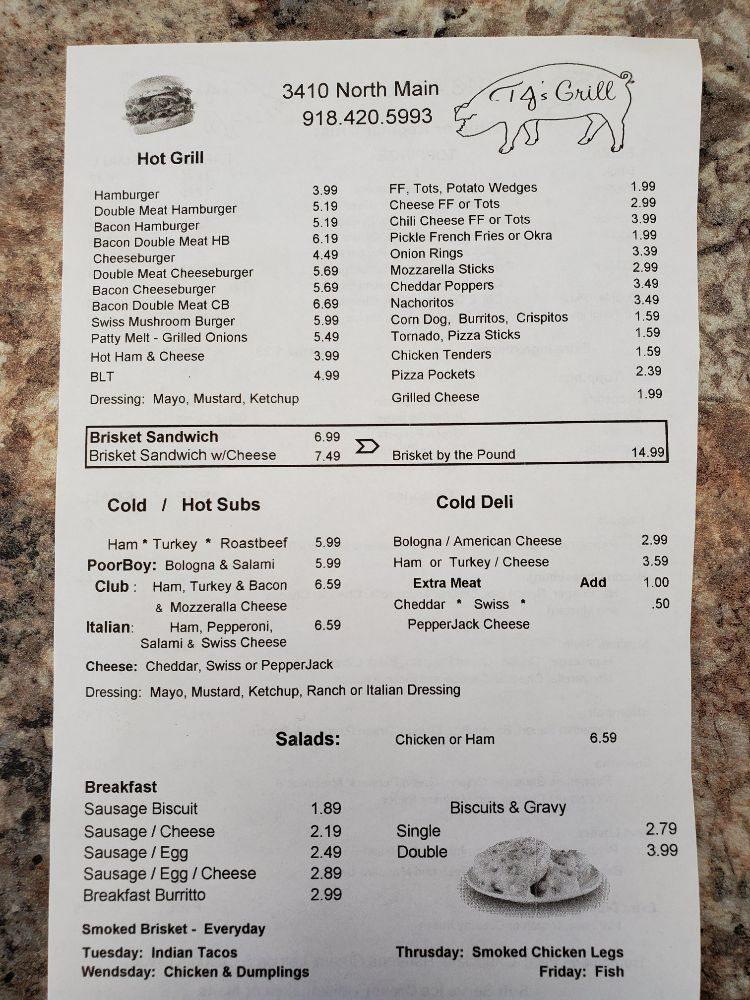 3410 North Main
918.420.5993
TJ's Grill
Hot Grill
Hamburger 3.99
Double Meat Hamburger 5.19
Bacon Hamburger 5.19
Bacon Double Meat HB 6.19
Cheeseburger 4.49
Double Meat Cheeseburger 5.69
Bacon Cheeseburger 5.69
Bacon Double Meat CB 6.69
Swiss Mushroom Burger 5.99
Patty Melt - Grilled Onions 5.49
Hot Ham & Cheese 3.99
BLT 4.99
Dressing: Mayo, Mustard, Ketchup
FF, Tots, Potato Wedges 1.99
Cheese FF or Tots 2.99
Chili Cheese FF or Tots 3.99
Pickle French Fries or Okra 1.99
Onion Rings 3.39
Mozzarella Sticks 2.99
Cheddar Poppers 3.49
Nachoritos 3.49
Corn Dog, Burritos, Crispitos 1.59
Tornado, Pizza Sticks 1.59
Chicken Tenders 1.59
Pizza Pockets 2.39
Grilled Cheese 1.99
Brisket Sandwich 6.99
Brisket Sandwich w/Cheese 7.49
Brisket by the Pound 14.99
Cold / Hot Subs
Ham * Turkey * Roastbeef 5.99
PoorBoy: Bologna & Salami 5.99
Club : Ham, Turkey & Bacon 6.59
& Mozzeralla Cheese
Italian: Ham, Pepperoni, 6.59
Salami & Swiss Cheese
Cheese: Cheddar, Swiss or PepperJack
Dressing: Mayo, Mustard, Ketchup, Ranch or Italian Dressing
Cold Deli
Bologna / American Cheese 2.99
Ham or Turkey / Cheese 3.59
Extra Meat Add 1.00
Cheddar * Swiss * .50
PepperJack Cheese
Salads: Chicken or Ham 6.59
Breakfast
Sausage Biscuit 1.89
Sausage / Cheese 2.19
Sausage / Egg 2.49
Sausage / Egg / Cheese 2.89
Breakfast Burritto 2.99
Biscuits & Gravy
Single 2.79
Double 3.99
Smoked Brisket - Everyday
Tuesday: Indian Tacos
Wendsday: Chicken & Dumplings
Thrusday: Smoked Chicken Legs
Friday: Fish